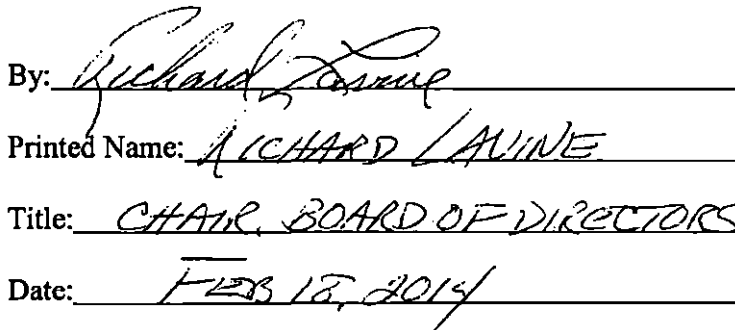 By: Richard Lavine
Printed Name: RICHARD LAVINE
Title: CHAIR, BOARD OF DIRECTORS
Date: FEB 18, 2014